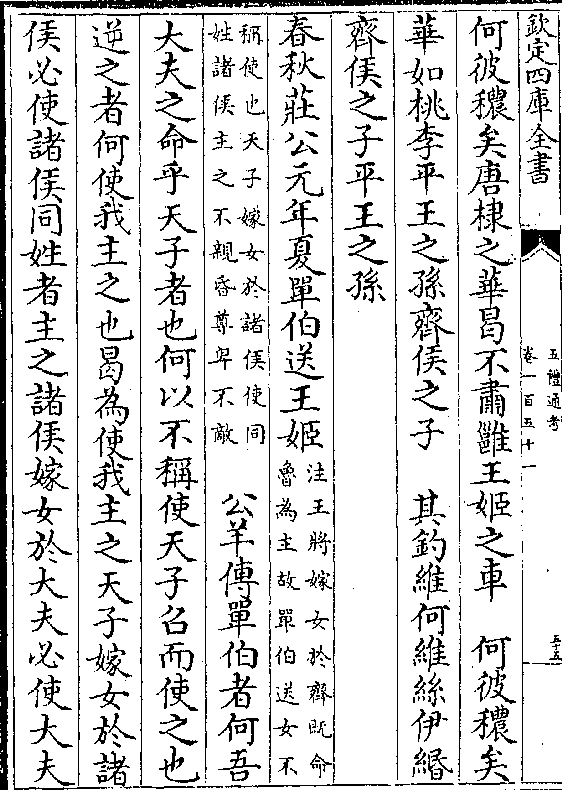 欽定四庫全書
五禮通考
卷一百五十一
五十五
何彼穠矣唐棣之華曷不肅雝王姬之車　何彼穠矣
華如桃李平王之孫齊侯之子　其釣維何維絲伊緡
齊侯之子平王之孫
春秋莊公元年夏單伯送王姬
注王將嫁女於齊既命
魯為主故單伯送女不
稱使也天子嫁女於諸侯使同
姓諸侯主之不親昏尊卑不敵
公羊傳單伯者何吾
大夫之命乎天子者也何以不稱使天子召而使之也
逆之者何使我主之也曷為使我主之天子嫁女於諸
侯必使諸侯同姓者主之諸侯嫁女於大夫必使大夫